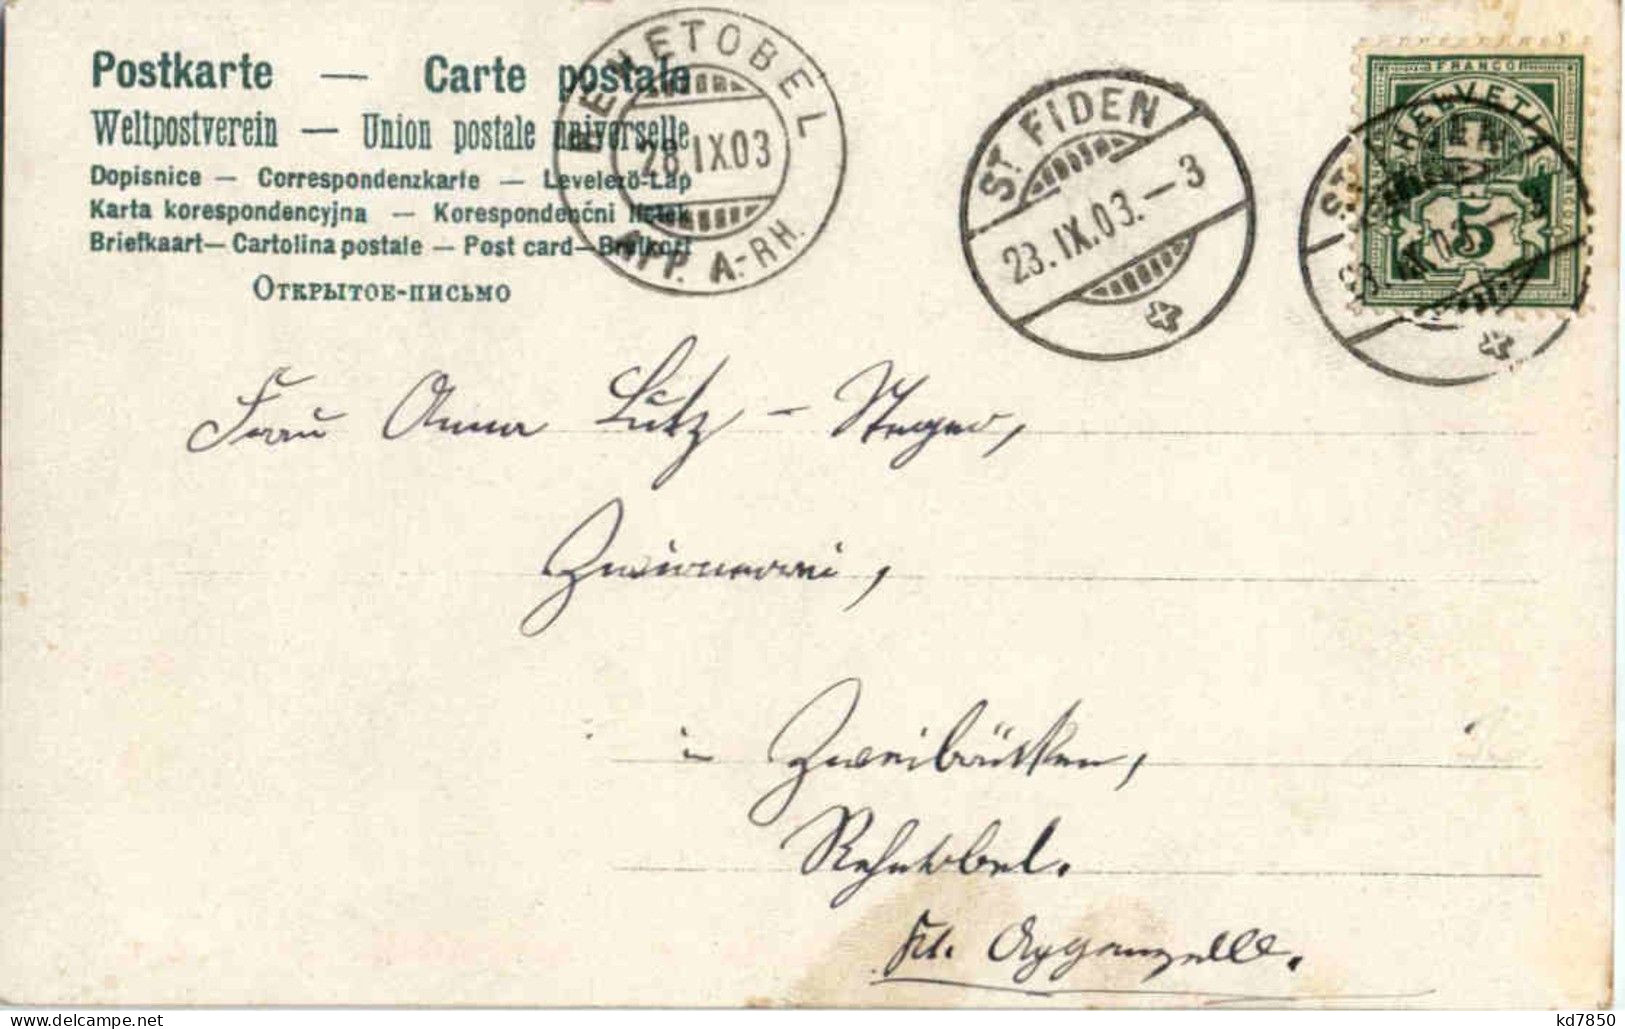 Postkarte — Carte postale
Weltpostverein — Union postale universelle
Dopisnice — Correspondenzkarte — Levelező-Lap
Karta korespondencyjna — Korespondenčni listek
Briefkaart — Cartolina postale — Post card — Brefkort
Открытое-письмо
REHETOBEL
28.IX.03
APP. A.-RH.
ST. FIDEN
23.IX.03.—3
ST. FIDEN
23.IX.03.—3
FRANCO
HELVETIA
5
Frau Anna Lutz - Steger,
Zwirnerei,
in Zweibrücken,
Rehetobel.
Kt. Appenzell.
kd7850